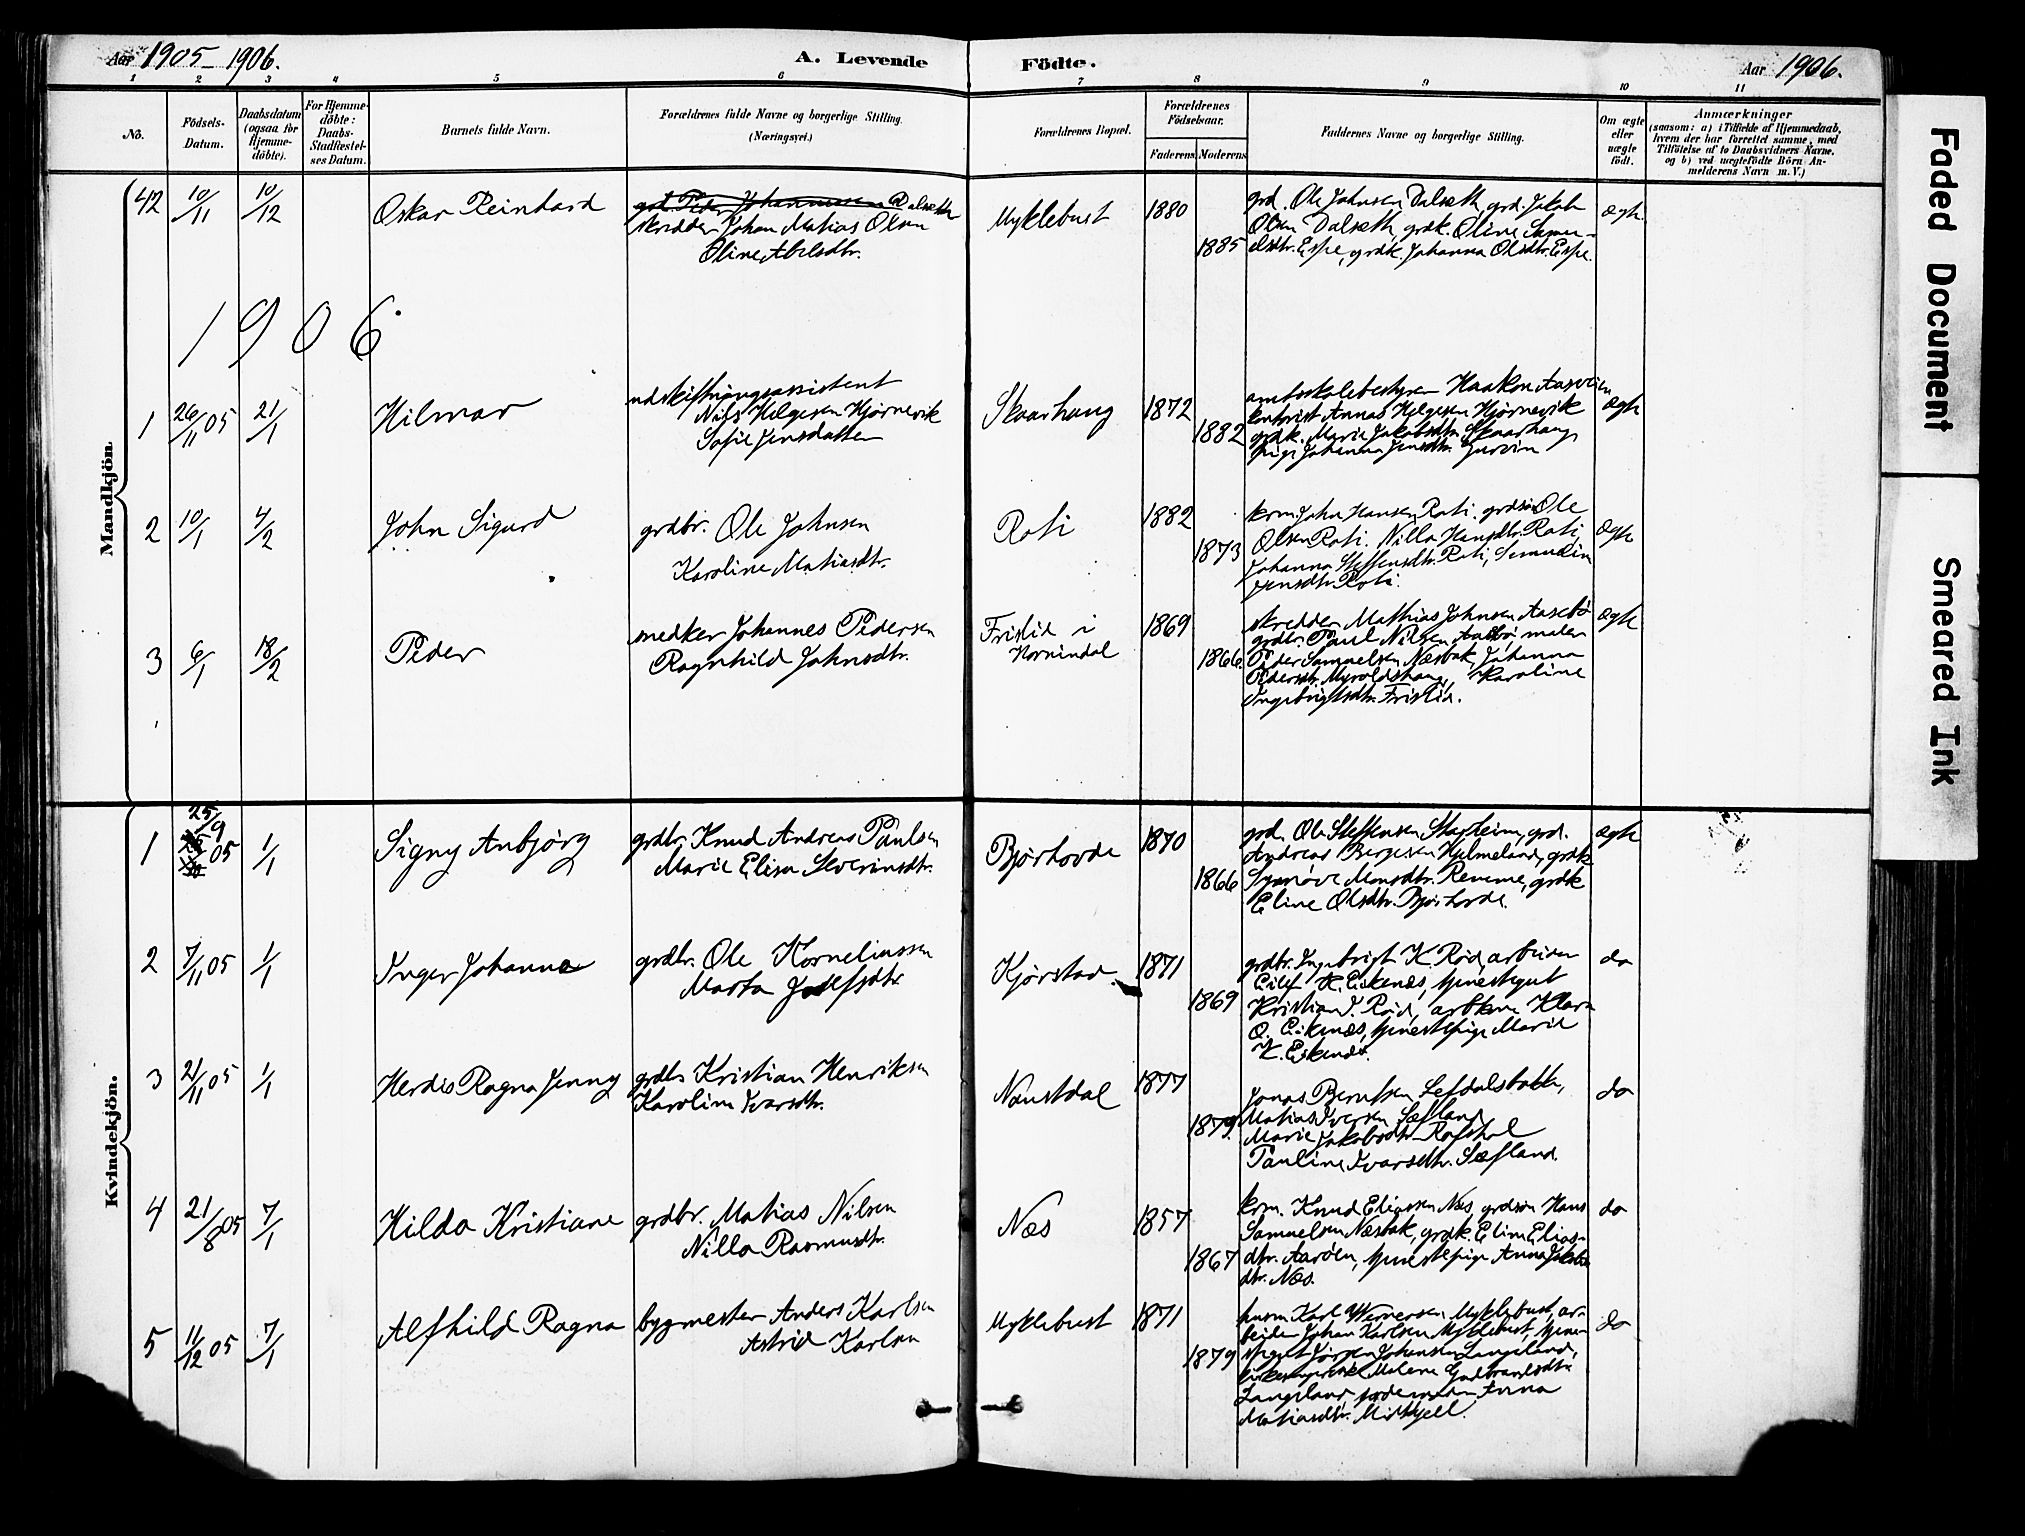 Aar 1905-1906.
A. Levende Födte.
Aar 1906.
1 2 3 4 5 6 7 8 9 10 11
No.
Födsels-Datum.
Daabsdatum (ogsaa for Hjemme-döbte).
For Hjemme-döbte: Daabs-Stadfæstel-ses Datum.
Barnets fulde Navn.
Forældrenes fulde Navne og borgerlige Stilling.
(Næringsvei.)
Forældrenes Bopæl.
Forældrenes Födselsaar.
Faderens Moderens
Faddernes Navne og borgerlige Stilling.
Om ægte eller uægte födt.
Anmærkninger
(saasom: a) i Tilfælde af Hjemmedaab,
hvem der har forrettet samme, med
Tilföielse af to Daabsvidners Navne.
og b) ved uægtefödte Börn An-
melderens Navn m. V.)
Mandkjön.
42 10/11 10/12 Oskar Reinhard
grd. Peder Johannessen Dalseth
skredder Johan Matias Olsen
Oline Abelsdtr.
Myklebust 1880 1885
grd. Ole Johnsen Dalseth, grd. Jakob
Olsen Dalseth, grdk. Oline Samu-
elsdtr. Espe, grdk. Johanna Olsdtr. Espe.
ægte
1906.
1 26/11 05 21/1 Hilmar
udskiftningsassistent
Nils Helgesen Hjørnevik
Sofie Jensdatter
Skaarhaug 1872 1882
amtsskolebestyrer Haakon Aasveien
kontorist Annas Helgesen Hjørnevik
grdk. Marie Jakobsdtr. Skaarhaug
pige Johanna Jensdtr.
ægte
2 10/1 4/2 John Sigurd
grdbr. Ole Johnsen
Karoline Matiasdtr.
Roti 1882 1873
krm. John Hansen Roti. grdsøn Ole
Olsen Roti. Nilla Hansdtr. Roti,
Johanna Steffensdtr. Roti,
Jensdtr. Roti.
ægte
3 6/1 18/2 Peder
snedker Johannes Pedersen
Ragnhild Johnsdtr.
Fristid i
Hornindal
1869 1866.
skredder Mathias Johnsen Aasebø
grdbr. Paul Nilsen Aasebø maler
Peder Samuelsen Næsbak, Johanna
Pedersdtr. Myroldhaug, Karoline
Ingebrigtsdtr. Fristid.
ægte
Kvindekjön.
1 25/9 05 1/1 Signy Anbjørg
grdbr. Knud Andreas Paulsen
Marie Elisa Severinsdtr.
Bjørhovde 1870 1866
grd. Ole Steffensen Skarheim, grd.
Andreas Børgesen Hjelmeland, grdk
Synnøve Monsdtr. Remme, grdk
Eline Olsdtr. Bjørhovde.
ægte
2 7/11 05 1/1 Inger Johanne
grdbr. Ole Korneliussen
Marta
Kjørstad. 1871 1869
grdbr. Ingebrigt K. Rød, arbeider
Eilef K. Eikenæs, tjenestegut
Kristian I. Rød, arbkone Klara
O. Eikenæs, tjenestepige Marie
K. Eikenæs.
do
3 21/11 05 1/1 Herdis Ragna Jenny
grdbr Kristian Henriksen
Karoline Ivarsdtr.
Naustdal 1877 1879.
Jonas Berntsen Lefdalsbakk,
Matias Iversen Sæfland
Marie Jakobsdtr. Rafstal
Pauline Ivarsdtr. Sæfland.
do
4 21/8 05 7/1 Hilda Kristiane
grdbr. Matias Nilsen
Nilla Rasmusdtr.
Næs 1857 1867
krm. Knud Eliassen Næs, grdsøn Hans
Samuelsen Næsbak, grdk. Eline Elias-
dtr. Aarøen, tjenestepige Anna Jakobs-
dtr. Næs.
do
5 11/12 05 7/1 Alfhild Ragna
bygmester Anders Karlsen
Astrid Karlsen
Myklebust 1871 1879
husm. Karl Wernersen Myklebust, ar-
beider Johan Karlsen Myklebust, tjene-
stegut Jørgen Johansen Langeland,
Malene Gudbrandsdtr.
Langeland, Anna
Matiasdtr. Midthjell.
do
Faded Document
Smeared Ink